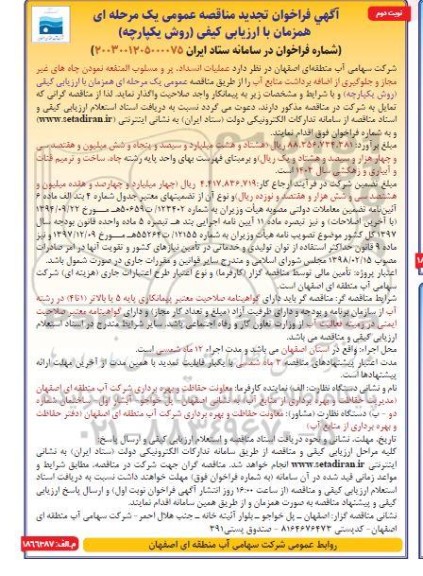 نوبت دوم
آگهي فراخوان تجدید مناقصه عمومی یک مرحله ای
همزمان با ارزیابی کیفی (روش یکپارچه)
(شماره فراخوان در سامانه ستاد ایران ۲۰۰۳۰۰۱۲۰۵۰۰۰۰۷۵)
شرکت سهامی آب منطقه‌ای اصفهان در نظر دارد عملیات انسداد، پر و مسلوب المنفعه نمودن چاه های غیر
مجاز و جلوگیری از اضافه برداشت منابع آب را از طریق مناقصه عمومی یک مرحله ای همزمان با ارزیابی کیفی
(روش یکپارچه) و با شرایط و مشخصات زیر به پیمانکار واجد صلاحیت واگذار نماید. لذا از مناقصه گرانی که
تمایل به شرکت در مناقصه مذکور دارند، دعوت می گردد نسبت به دریافت اسناد استعلام ارزیابی کیفی و
اسناد مناقصه از سامانه تدارکات الکترونیکی دولت (ستاد ایران) به نشانی اینترنتی (www.setadiran.ir)
و به شماره فراخوان فوق اقدام نمایند.
مبلغ برآورد: ۸۸،۳۵۶،۷۳۴،۳۸۱ ریال (هشتاد و هشت میلیارد و سیصد و پنجاه و شش میلیون و هفتصد سی
و چهار هزار و سیصد و هشتاد و یک ریال) و برمبنای فهرست بهای واحد پایه رشته چاه، ساخت و ترمیم قنات
و آبیاری و زهکشی سال ۱۴۰۳ است.
مبلغ تضمین شرکت در فرآیند ارجاع کار: ۴،۴۱۷،۸۳۶،۷۱۹ ریال (چهار میلیارد و چهارصد و هفده میلیون و
هشتصد سی و شش هزار و هفتصد و نوزده ریال) و نوع آن از تضمینهای معتبر جدول شماره ۴ بند الف ماده ۶
آئین‌نامه تضمین معاملات دولتی مصوبه هیأت وزیران به شماره ۱۲۳۴۰۲/ت۵۰۶۵۹هـ مـورخ ۱۳۹۴/۰۹/۲۲
(با آخرین اصلاحات) و نیز تبصره ماده ۱۱ آیین نامه اجرایی بند هـ تبصره ۵ ماده واحده قانون بودجه سال
۱۳۹۷ کل کشور موضوع تصویب نامه هیأت وزیران به شماره ۱۲۱۵۵/ت۵۵۲۶۴هـ مـورخ ۱۳۹۷/۰۲/۰۹ و نیز
ماده ۹ قانون حداکثر استفاده از توان تولیدی و خدماتی در تأمین نیازهای کشور و تقویت آنها در امر صادرات
مصوب ۱۳۹۸/۰۲/۱۵ مجلس شورای اسلامی و مندرج سایر قوانین و مقررات جاری در صورت شمول باشد.
اعتبار پروژه: تأمین مالی توسط مناقصه گزار (کارفرما) و نوع اعتبار طرح اعتبارات جاری (هزینه ای) شرکت
سهامی آب منطقه ای اصفهان است.
شرایط مناقصه گر: مناقصه گر باید دارای گواهینامه صلاحیت معتبر پیمانکاری پایه ۵ یا بالاتر (۱تا۴) در رشته
آب از سازمان برنامه و بودجه و دارای ظرفیت آزاد (مبلغ و تعداد کار مجاز) و دارای گواهینامه معتبر صلاحیت
ایمنی در زمینه فعالیت آب از وزارت تعاون کار و رفاه اجتماعی باشد. سایر شرایط مندرج در اسناد استعلام
ارزیابی کیفی و مناقصه می باشد.
محل اجرا: واقع در استان اصفهان می باشد و مدت اجراء ۱۲ ماه شمسی است.
مدت اعتبار پیشنهادهای مناقصه ۳ ماه شمسی با یکبار قابلیت تمدید با همین مدت از آخرین مهلت ارائه
پیشنهادها است.
نام و نشانی دستگاه نظارت: الف) نماینده کارفرما: معاونت حفاظت و بهره برداری شرکت آب منطقه ای اصفهان
(مدیریت حفاظت و بهره برداری از منابع آب) به نشانی اصفهان - پل خواجو- آبشار اول - ساختمان شماره
دو - ب) دستگاه نظارت (مشاور): معاونت حفاظت و بهره برداری شرکت آب منطقه ای اصفهان (دفتر حفاظت
و بهره برداری از منابع آب)
تاریخ، مهلت، نشانی و نحوه دریافت اسناد مناقصه و استعلام ارزیابی کیفی و ارسال پاسخ:
کلیه مراحل ارزیابی کیفی و مناقصه از طریق سامانه تدارکات الکترونیکی دولت (ستاد ایران) به نشانی
اینترنتی www.setadiran.ir انجام خواهد شد. مناقصه گران جهت شرکت در مناقصه، مطابق شرایط و
مواعد زمانی قید شده در آن سامانه (به شماره فراخوان فوق) مهلت خواهند داشت نسبت به دریافت اسناد
استعلام ارزیابی کیفی و مناقصه (از ساعت ۱۶:۰۰ روز انتشار آگهی فراخوان نوبت اول) و ارسال پاسخ ارزیابی
کیفی و پیشنهاد مناقصه به صورت همزمان و از طریق همین سامانه اقدام نمایند.
نشانی مناقصه گزار: اصفهان ـ پل خواجو ـ بلوار آئینه خانه ـ جنب هلال احمر - شرکت سهامی آب منطقه ای
اصفهان - کدپستی ۸۱۶۴۶۷۶۴۷۳ - صندوق پستی ۳۹۱
روابط عمومی شرکت سهامی آب منطقه ای اصفهان
م.الف: ۱۸۶۶۳۸۷
۰۲۱-۸۸۳۴۹۶۷۰